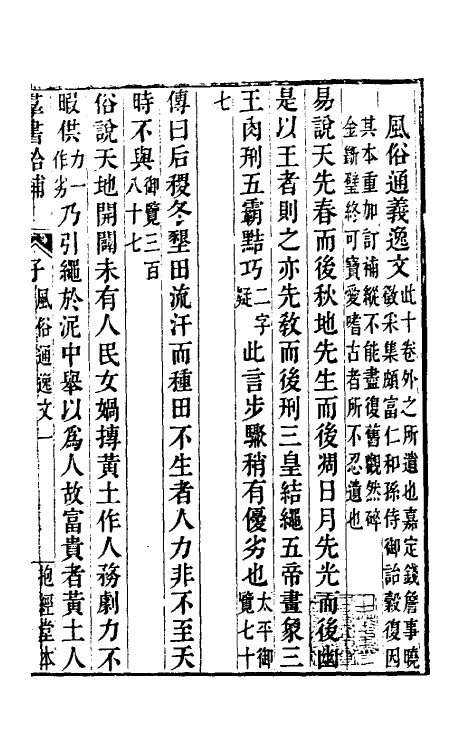 風俗通義逸文此十卷外之所遺也嘉定錢詹事曉
敚采集頗富仁和孫侍御詒穀復因
其本重加訂補縱不能盡復舊觀然碎
金斷璧終可寶愛嗜古者所不忍遺也
易說天先春而後秋地先生而後凋日月先光而後幽
是以王者則之亦先教而後刑三皇結繩五帝畫象三
王肉刑五霸黠巧二字疑此言步驟稍有優劣也太平御覽七十
七
傳曰后稷冬墾田流汗而種田不生者人力非不至天
時不與御覽三百八十七
俗說天地開闢未有人民女媧摶黃土作人務劇力不
暇供力一作劣乃引繩於泥中舉以爲人故富貴者黃土人
羣書拾補 子 風俗通逸文 一 抱經堂本